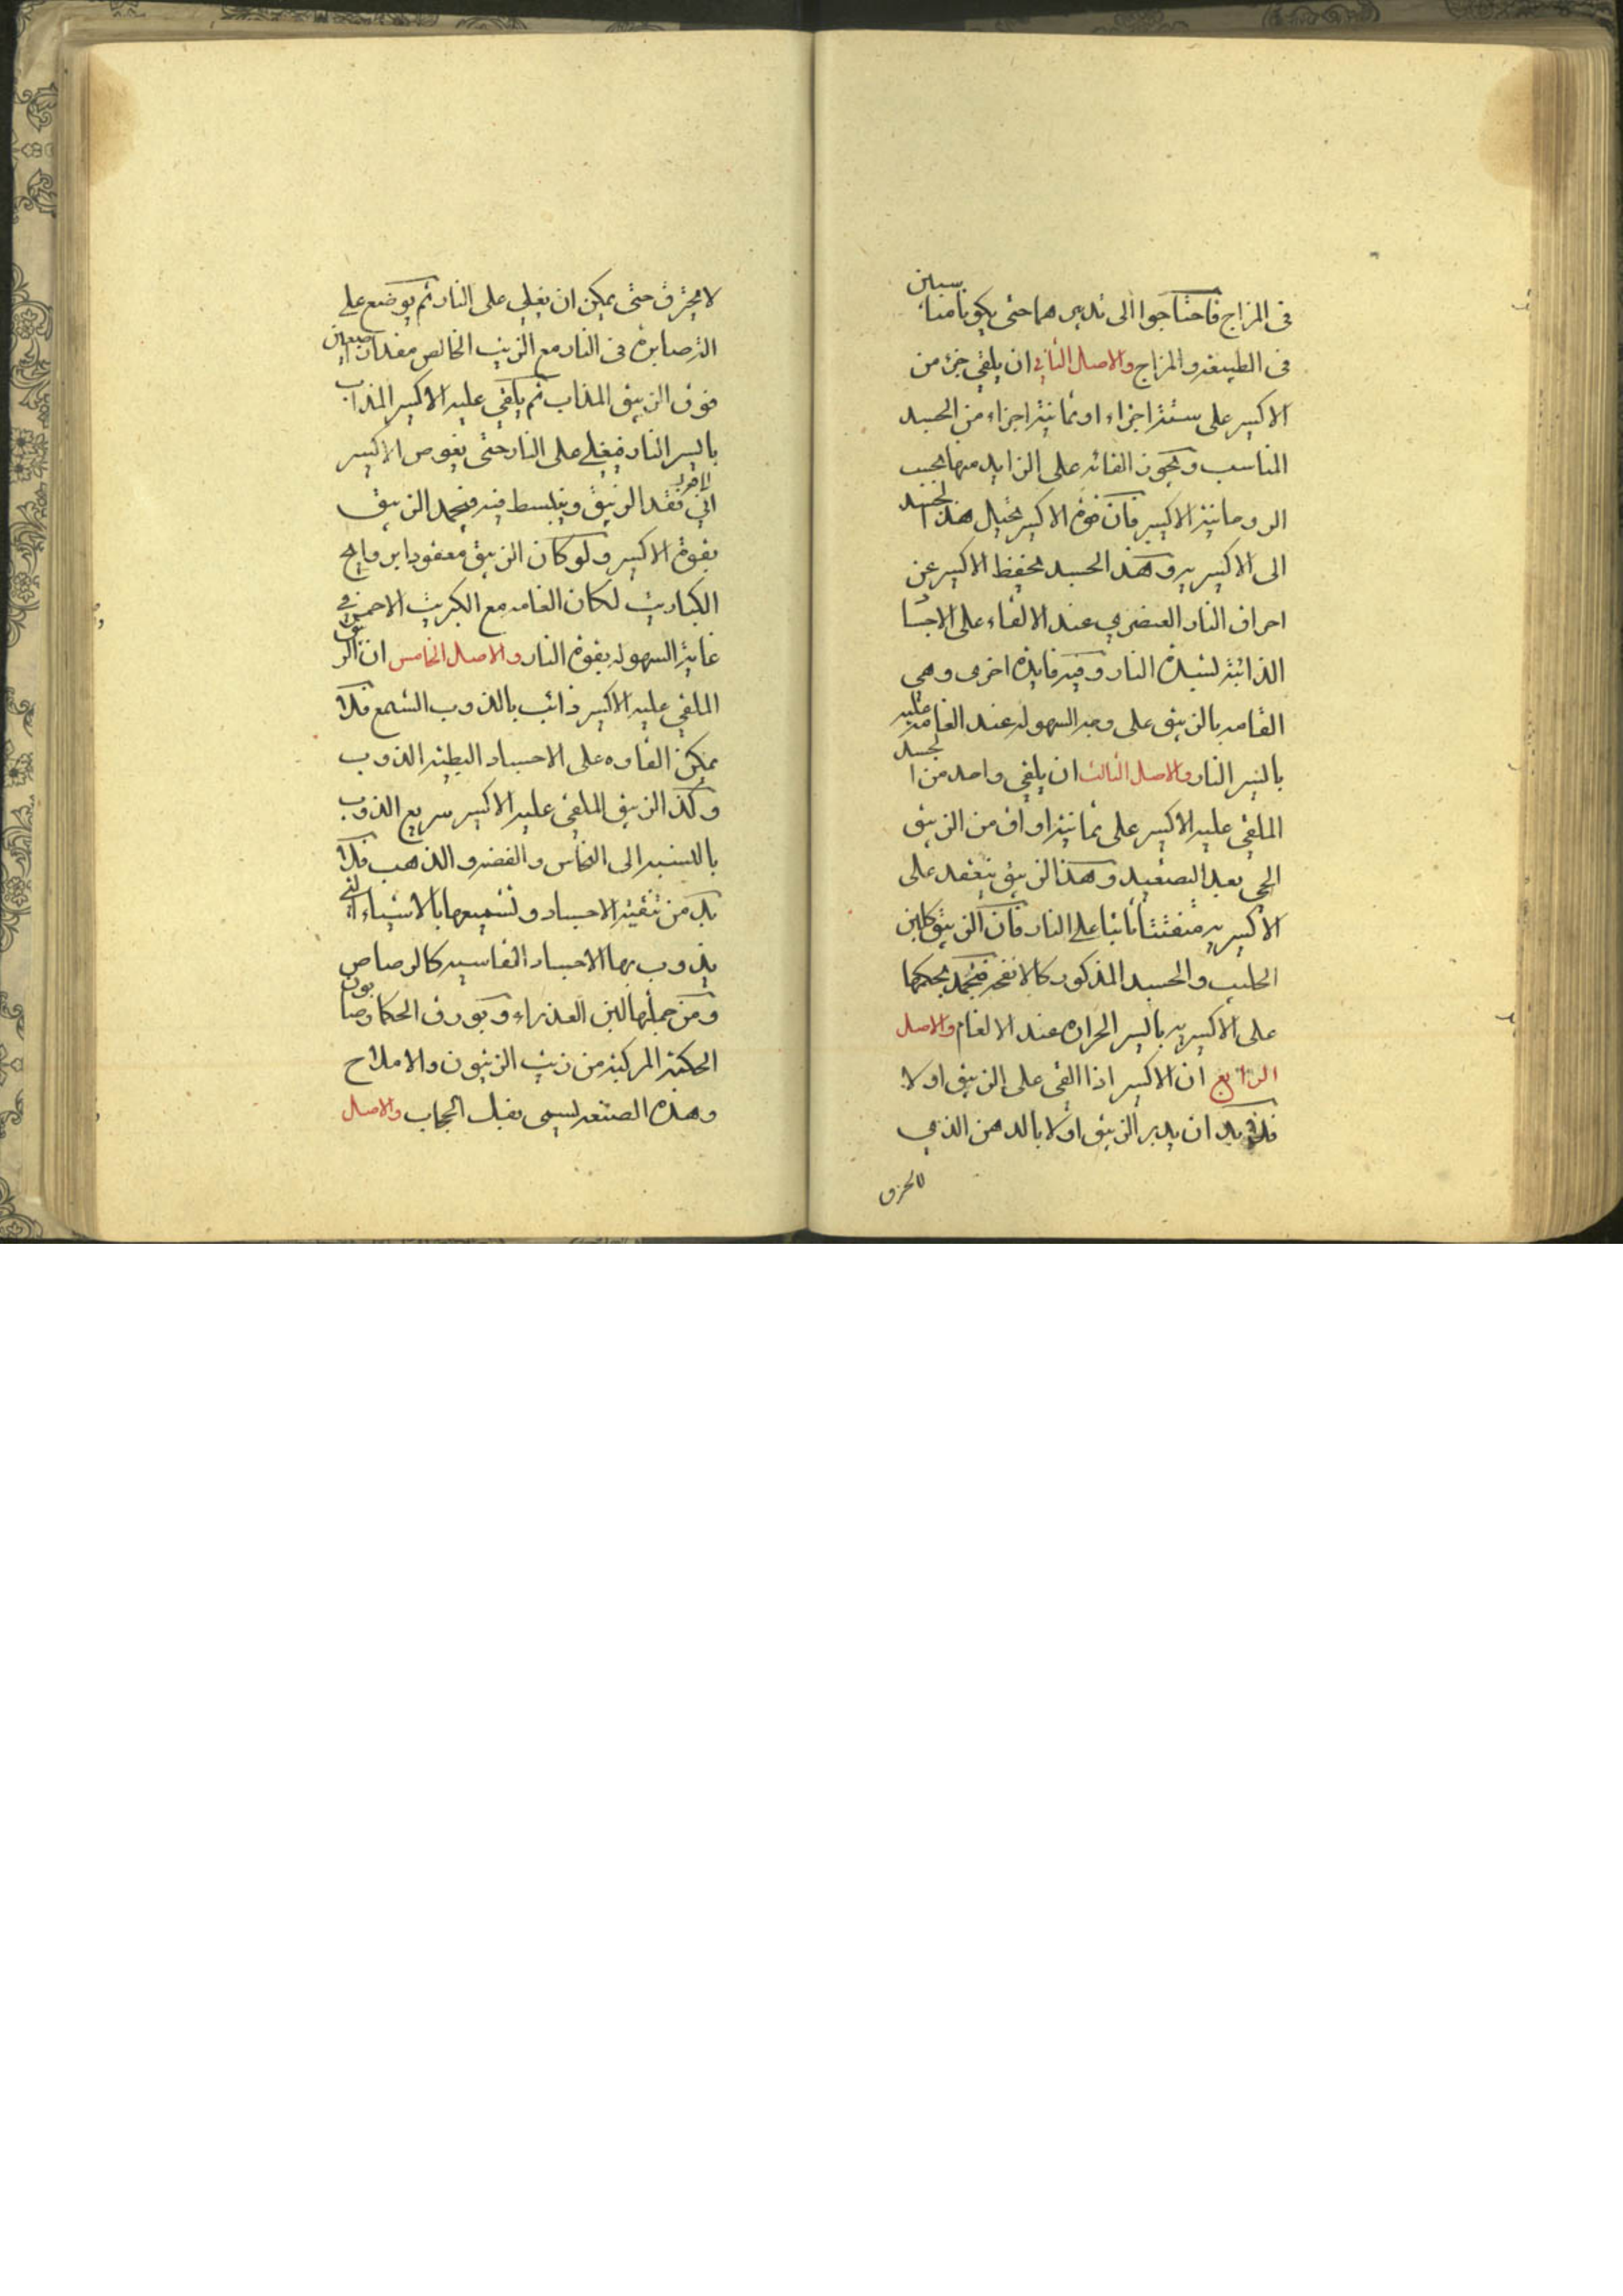 فى المزاج فاحتاجوا الى تدبيرهما حتى يكونا متناسبين
فى الطبيعة والمزاج والاصل الثانى ان يلقى جزء من
الاكسير على ستة اجزاء او ثمانية اجزاء من الجسد
المناسب ويجوز القائه على الزايد منها بحسب
الروحانية الاكسير فان قوة الاكسير تحيل هذا الجسد
الى الاكسيرية وهذا الجسد يحفظ الاكسير عن
احراق النار العنصرى عند الالقاء على الاجسا
الذائبة لشدة النار وفيه فايدة اخرى وهى
القامه بالزيبق على وجه السهولة عند القامه عليه
باليسير النار والاصل الثالث ان يلقى واحد من الجسد
الملقى عليه الاكسير على ثمانية اواق من الزيبق
الحى بعد التصعيد وهذا الزيبق ينعقد على
الاكسيرية متفتتا ثانيا على النار فان الزيبق كلبن
الحليب والجسد المذكور كالانفحة فتجمد بحكمها
على الاكسيرية باليسر الحرارة عند الالغام والاصل
الرابع ان الاكسير اذا القى على الزيبق اولا
فلا بد ان يدبر الزيبق اولا بالدهن الذى
لا يحترق
لا يحترق حتى يمكن ان يغلى على النار ثم يوضع على
النار مع الزيت الخالص مقدار اصبعين
فوق الزيبق المذاب ثم يلقى عليه الاكسير المذاب
باليسر النار فيغلى على النار حتى يغوص الاكسير
فى قعد الزيبق وينبسط فيه فيجمد الزيبق
بقوة الاكسير ولو كان الزيبق معقودا بروايح
الكباريت لكان القامه مع الكبريت الاحمر فى
غاية السهولة بقوة النار والاصل الخامس ان الزيبق
الملقى عليه الاكسير ذائب بالذوب الشمع فلا
يمكن القاؤه على الاجساد البطيئة الذوب
وكذا الزيبق الملقى عليه الاكسير سريع الذوب
بالنسبة الى النحاس والفضة والذهب فلا
بد من تنقية الاجساد وتشميعها بالاشياء التى
يذوب بها الاجساد القاسية كالرصاص
ومن جملتها لبن العذراء وبورق الحكما وصابون
الحكمة المركبة من زيت الزيتون والاملاح
وهذه الصنعة يسمى بقبل الحجاب والاصل